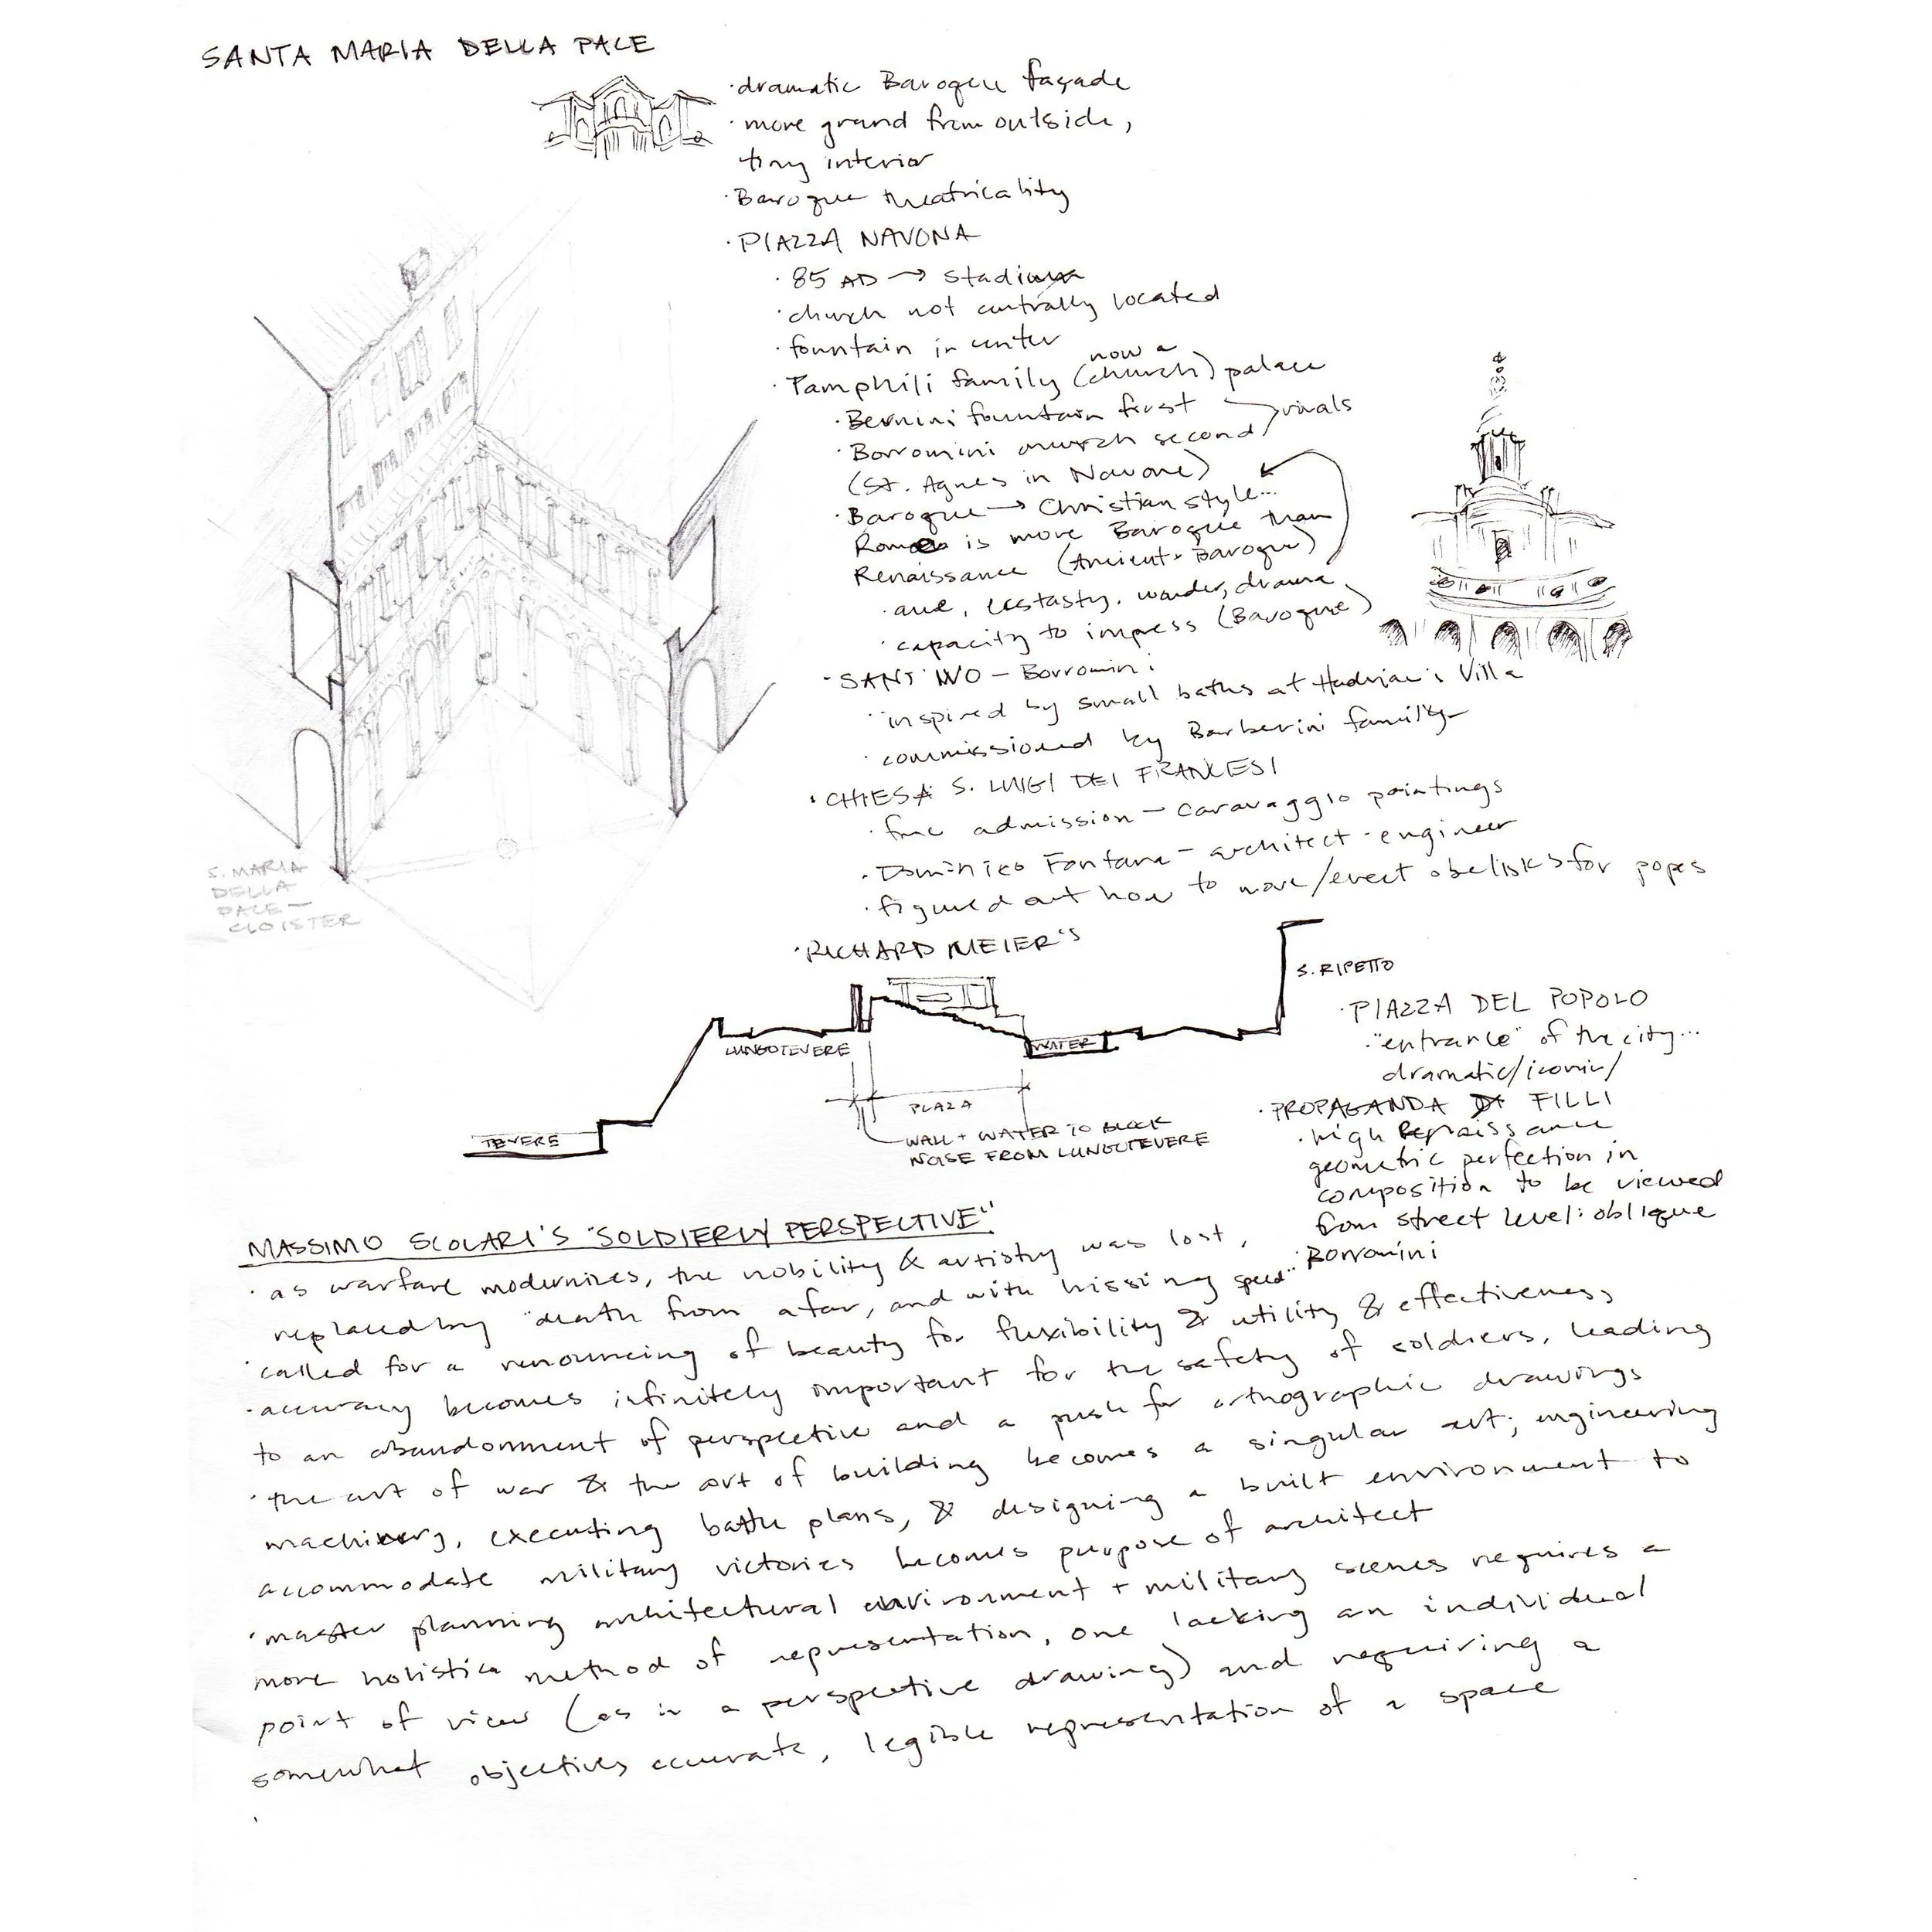 SANTA MARIA DELLA PACE
·dramatic Baroque façade
·more grand from outside,
tiny interior
·Baroque theatricality
·PIAZZA NAVONA
·85 AD → stadium
·church not centrally located
·fountain in center
now a
·Pamphili family (church) palace
·Bernini fountain first
rivals
·Borromini church second
(St. Agnes in Navone)
·Baroque → Christian style...
Rome is more Baroque than
Renaissance (Ancient + Baroque)
·awe, ecstasty, wonder, drama
·capacity to impress (Baroque)
·SANT'IVO – Borromini
·inspired by small baths at Hadrian's Villa
·commissioned by Barberini family
·CHIESA S. LUIGI DEI FRANCESI
·free admission – Caravaggio paintings
·Dominico Fontana – architect-engineer
·figured out how to move/erect obelisks for popes
S. MARIA
DELLA
PACE –
CLOISTER
·RICHARD MEIER'S
S. RIPETTO
LUNGOTEVERE
WATER
PLAZA
TEVERE
WALL + WATER TO BLOCK
NOISE FROM LUNGOTEVERE
·PIAZZA DEL POPOLO
·"entrance" of the city...
dramatic/iconic/
·PROPAGANDA FILLI
·high Renaissance
geometric perfection in
composition to be viewed
from street level: oblique
·Borromini
MASSIMO SCOLARI'S "SOLDIERLY PERSPECTIVE"
·as warfare modernizes, the nobility & artistry was lost,
replaced by "death from afar, and with hissing speed"
·called for a renouncing of beauty for flexibility & utility & effectiveness
·accuracy becomes infinitely important for the safety of soldiers, leading
to an abandonment of perspective and a push for orthographic drawings
·the art of war & the art of building becomes a singular art; engineering
machinery, executing battle plans, & designing a built environment to
accommodate military victories becomes purpose of architect
·master planning architectural environment + military scenes requires a
more holistic method of representation, one lacking an individual
point of view (as in a perspective drawing) and requiring a
somewhat objectives accurate, legible representation of a space